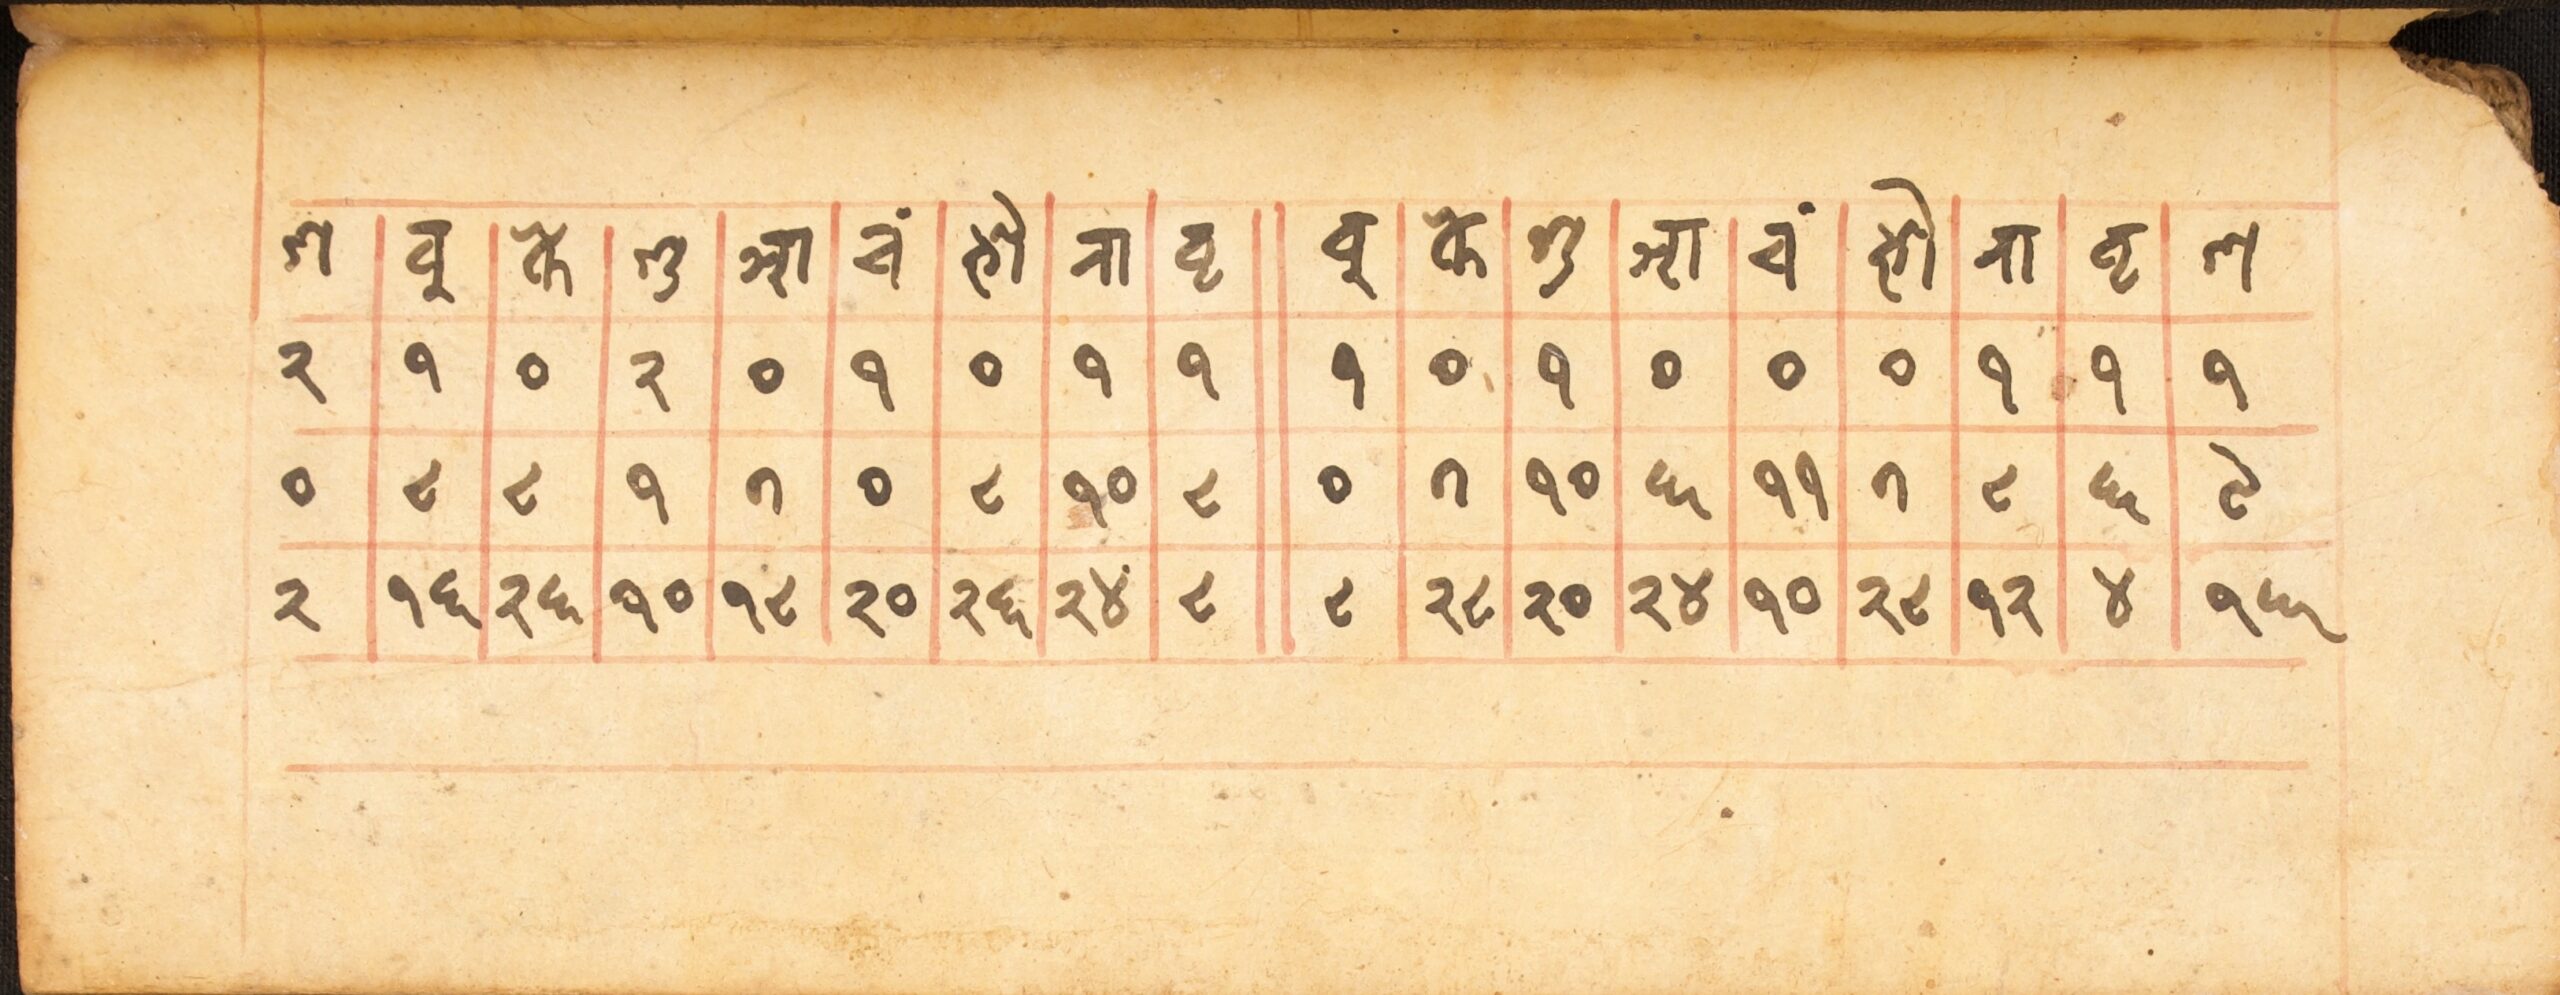 श बु के शु आ चं भौ रा बृ बु के शु आ चं भौ रा बृ श
२ १ ० २ ० १ ० १ १ १ ० १ ० ० ० १ १ १
० ८ ८ १ ७ ० ८ १० ८ ० ७ १० ६ ११ ७ ८ ६ ९
२ १६ २६ १० १८ २० २६ २४ ८ ८ २८ २० २४ १० २८ १२ ४ १६